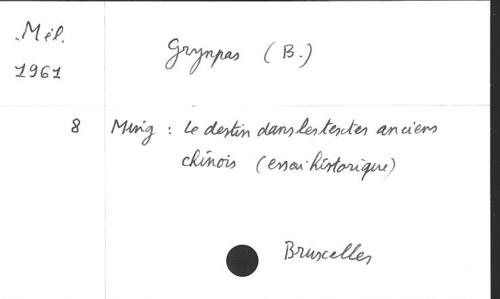 Mél.
1961
Grynpas (B.)
8
Ming : Le destin dans les textes anciens
chinois (essai historique)
Bruxelles